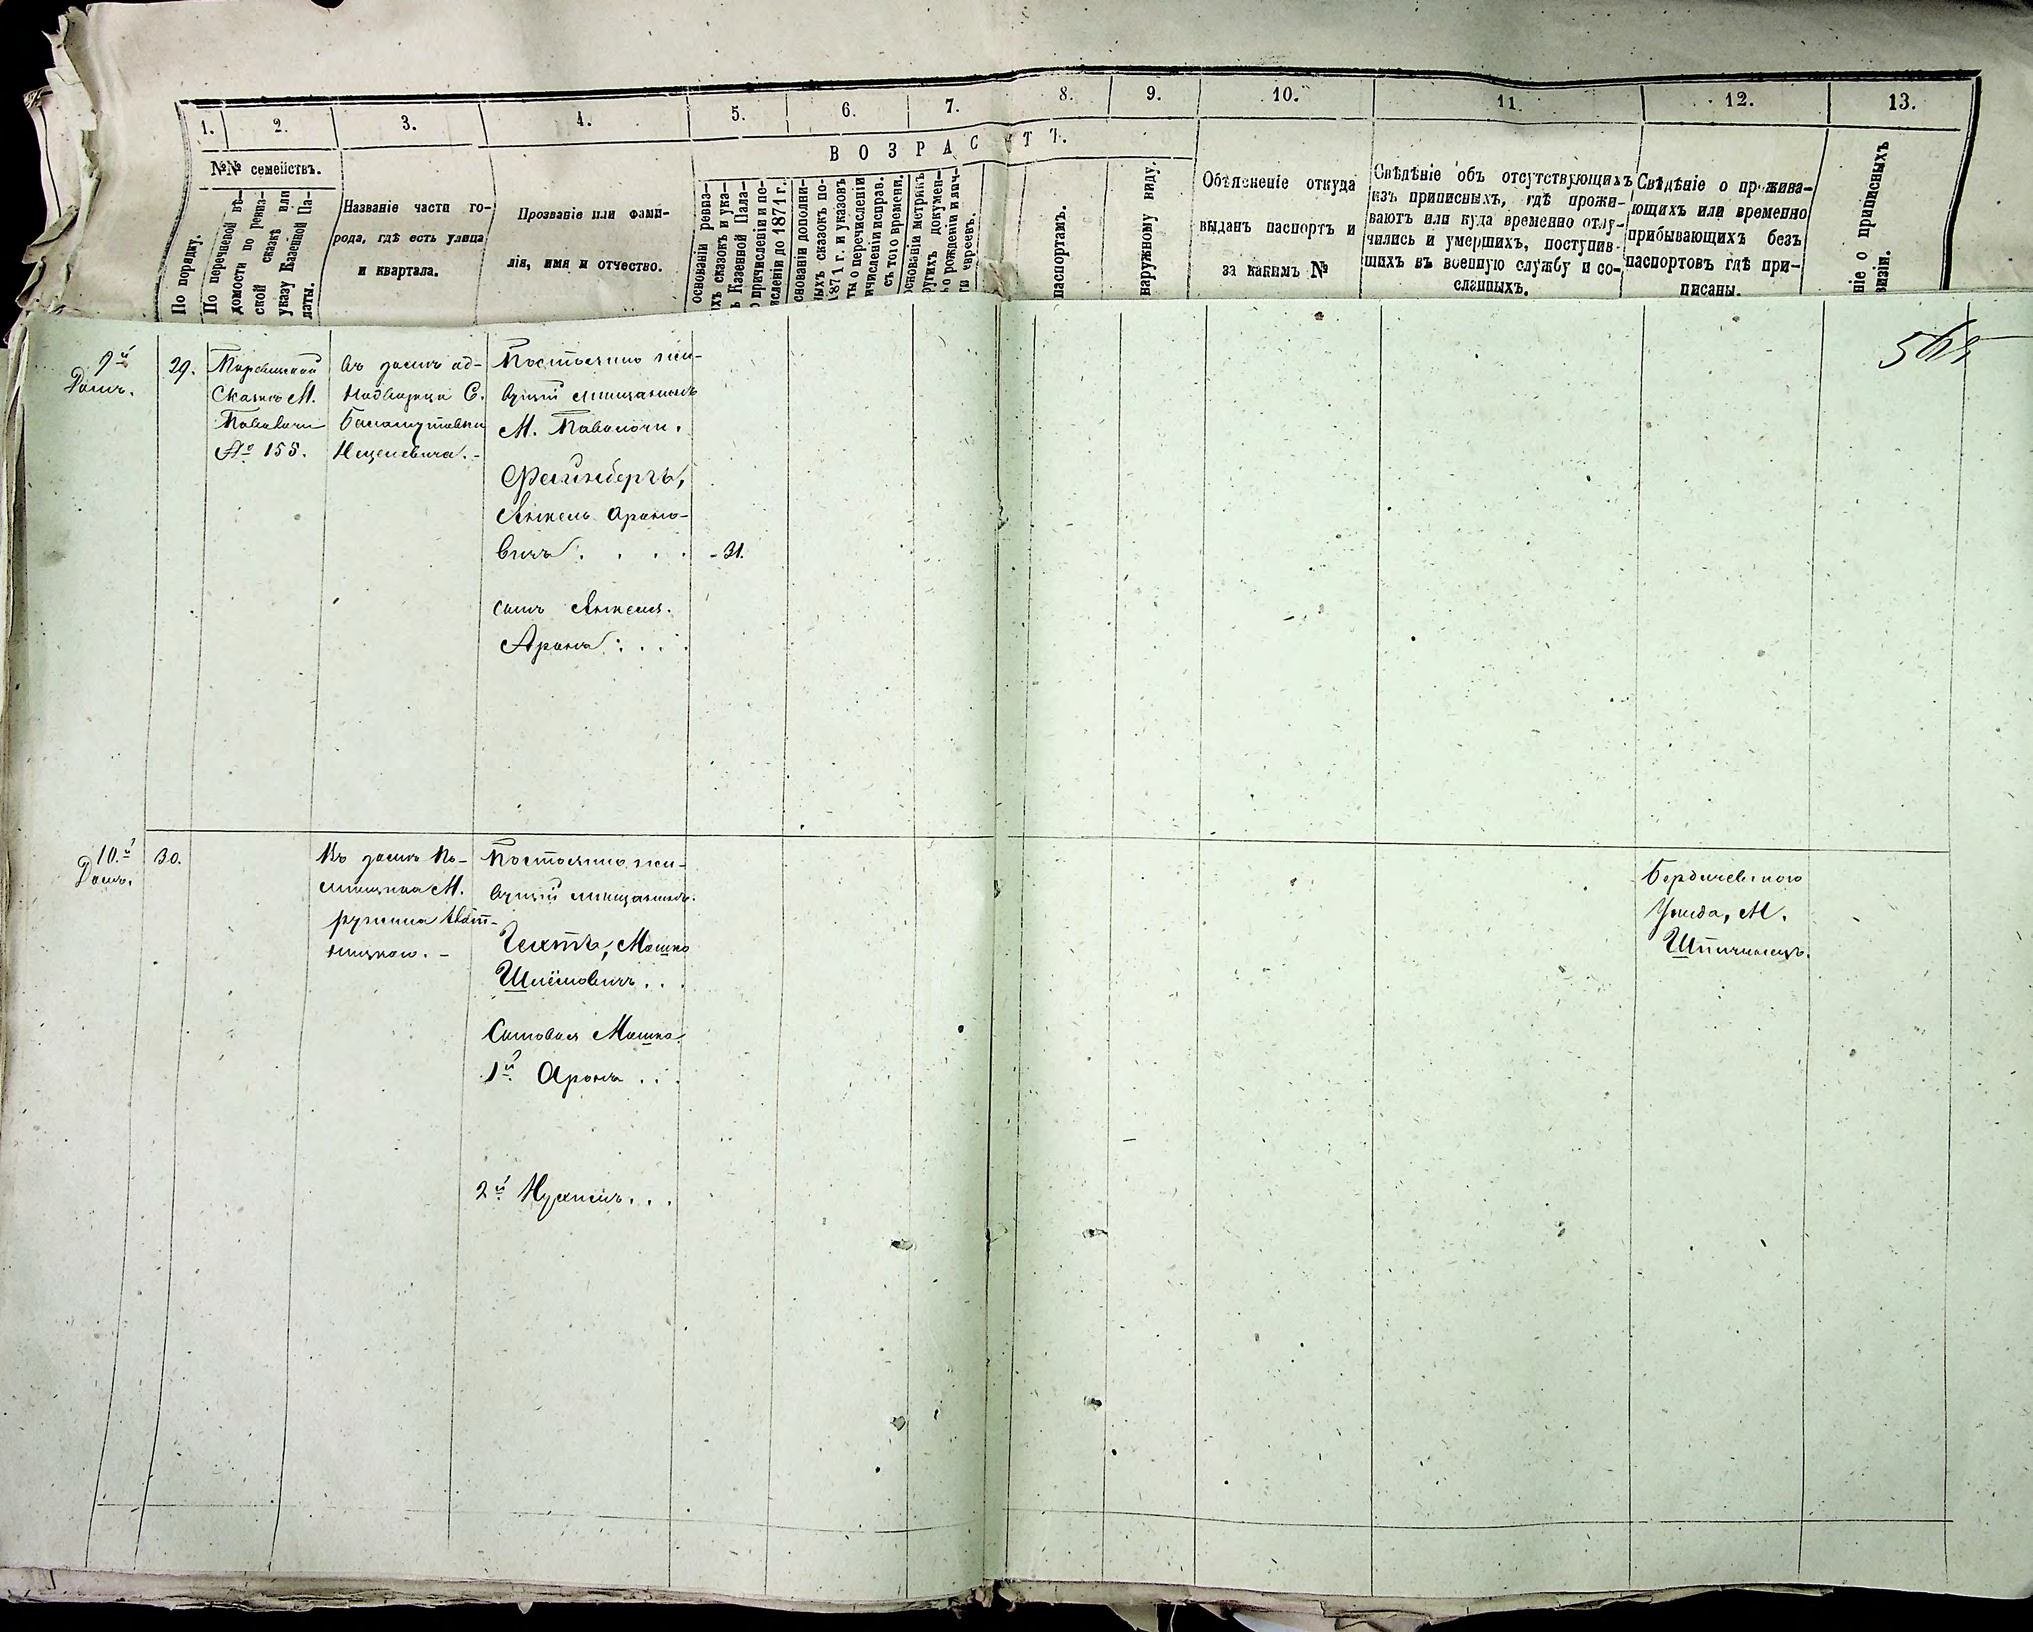 1. 2. 3. 4. 5. 6. 7. 8. 9. 10. 11. 12. 13.
ВОЗРАСТЪ.
№№ семействъ.
По порядку.
По перечневой вѣ-
домости по ревиз-
ской сказкѣ или
указу Казенной Па-
латы.
Названіе части го-
рода, гдѣ есть улица
и квартала.
Прозваніе или фами-
лія, имя и отчество.
основаніи ревиз-
хъ сказокъ и ука-
ъ Казенной Пала-
причисленіи и по-
исленіи до 1871 г.
основаніи дополни-
ныхъ сказокъ по-
1871 г. и указовъ
ты о перечисленіи
ичисленіи исправ.
съ того времени.
основаніи метрикъ
ругихъ докумен-
о рожденіи и лич-
ти евреевъ.
паспортамъ.
наружному виду.
Объясненіе откуда
выданъ паспортъ и
за какимъ №
Свѣдѣніе объ отсутствующихъ
изъ приписныхъ, гдѣ прожи-
ваютъ или куда временно отлу-
чились и умершихъ, поступив-
шихъ въ военную службу и со-
сланныхъ.
Свѣдѣніе о прожива-
ющихъ или временно
прибывающихъ безъ
паспортовъ гдѣ при-
писаны.
ніе о приписныхъ
визіи.
9й
Домъ.
29.
Сказкѣ М.
Паволочи
№ 155.
Въ домѣ од-
Постоянно жи-
вущій мѣщанинъ
М. Паволочи.
Фейнбергъ,
Янкель Ароно-
вичъ . . . .
- 31.
сынъ Янкеля.
Аронъ . . . .
10.й
Домъ.
30.
Въ домѣ по-
мѣщика М.
Ружина
Постоянно жи-
вущій мѣщанинъ.
Мошко
Шлёмовичъ . . .
Сыновья Мошка
1й Аронъ . . .
2й Нухимъ . . .
Бердичевскаго
Уѣзда, М.